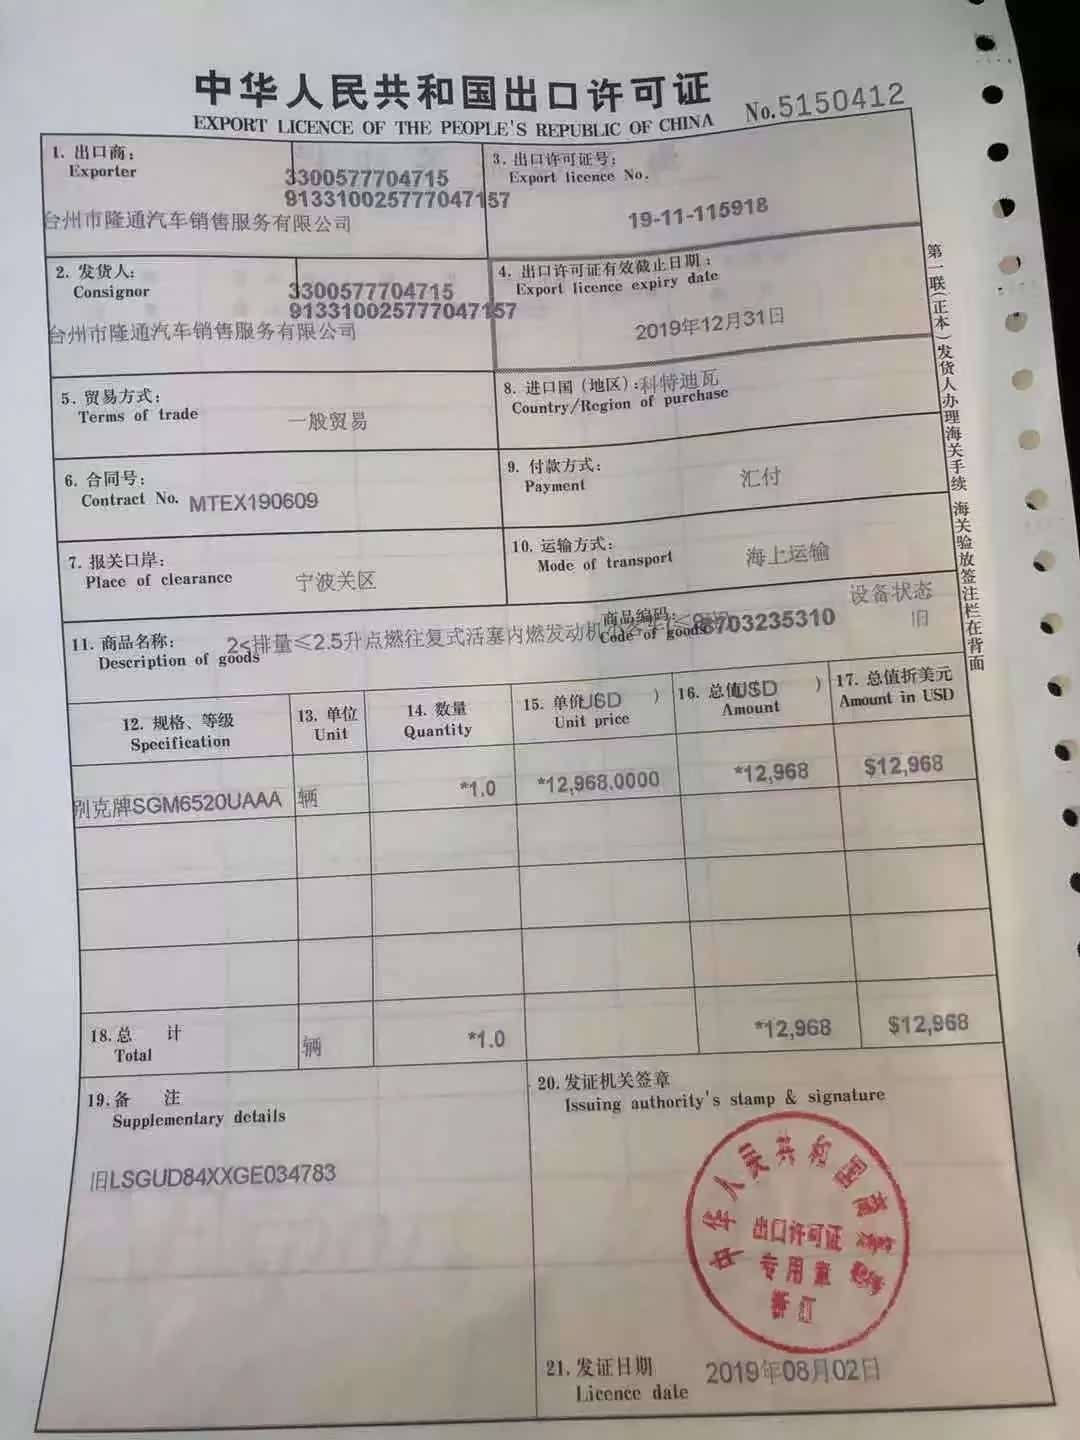 中华人民共和国出口许可证
EXPORT LICENCE OF THE PEOPLE'S REPUBLIC OF CHINA
No.5150412
1. 出口商:
Exporter
3300577704715
913310025777047157
台州市隆通汽车销售服务有限公司
3. 出口许可证号:
Export licence No.
19-11-115918
2. 发货人:
Consignor
3300577704715
913310025777047157
台州市隆通汽车销售服务有限公司
4. 出口许可证有效截止日期:
Export licence expiry date
2019年12月31日
5. 贸易方式:
Terms of trade
一般贸易
8. 进口国(地区):科特迪瓦
Country/Region of purchase
6. 合同号:
Contract No. MTEX190609
9. 付款方式:
Payment
汇付
7. 报关口岸:
Place of clearance
宁波关区
10. 运输方式:
Mode of transport
海上运输
11. 商品名称:
Description of goods
2<排量≤2.5升点燃往复式活塞内燃发动机小客车
商品编码:
Code of goods
8703235310
设备状态
旧
12. 规格、等级
Specification
13. 单位
Unit
14. 数量
Quantity
15. 单价USD )
Unit price
16. 总值USD )
Amount
17. 总值折美元
Amount in USD
别克牌SGM6520UAAA 辆 *1.0 *12,968.0000 *12,968 $12,968
18. 总 计
Total
辆 *1.0 *12,968 $12,968
19. 备 注
Supplementary details
旧LSGUD84XXGE034783
20. 发证机关签章
Issuing authority's stamp & signature
中华人民共和国商务部
出口许可证
专用章
浙江
21. 发证日期
Licence date
2019年08月02日
第一联(正本)发货人办理海关手续 海关验放签注栏在背面